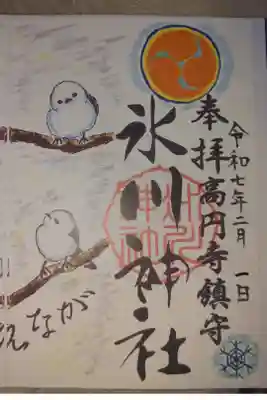 令和七年二月一日
奉拝高円寺鎮守
氷川神社
えなが